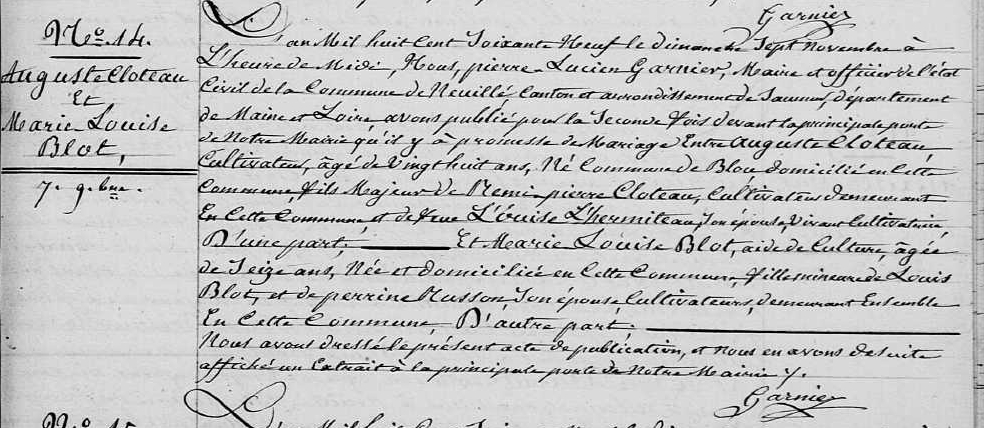 Garnier
No. 14.
Auguste Cloteau
Et
Marie Louise
Blot,
7. 9.bre.
L'an Mil huit Cent Soixante Neuf le dimanche Sept Novembre à
L'heure de Midi, Nous, pierre Lucien Garnier, Maire et officier de l'état
Civil de la Commune de Neuillé, Canton et arrondissement de Saumur, département
de Maine et Loire, avons publié pour la Seconde fois devant la principale porte
de Notre Mairie qu'il y à promesse de Mariage Entre Auguste Cloteau,
Cultivateur, âgé de Vingt huit ans, Né Commune de Blou domicilié en Cette
Commune, fils Majeur de Remi pierre Cloteau, Cultivateur demeurant
En Cette Commune et de feue Louise Lhermiteau, Son épouse, Vivant Cultivatrice,
D'une part, Et Marie Louise Blot, aide de Culture, âgée
de Seize ans, Née et domiciliée en Cette Commune, fille mineure de Louis
Blot, et de perrine Musson, Son épouse Cultivateurs, demeurant Ensemble
En Cette Commune, D'autre part.
Nous avons dressé le présent acte de publication, et Nous en avons de suite
affiché un Extrait à la principale porte de Notre Mairie.
Garnier
No. 15
L'an Mil huit Cent